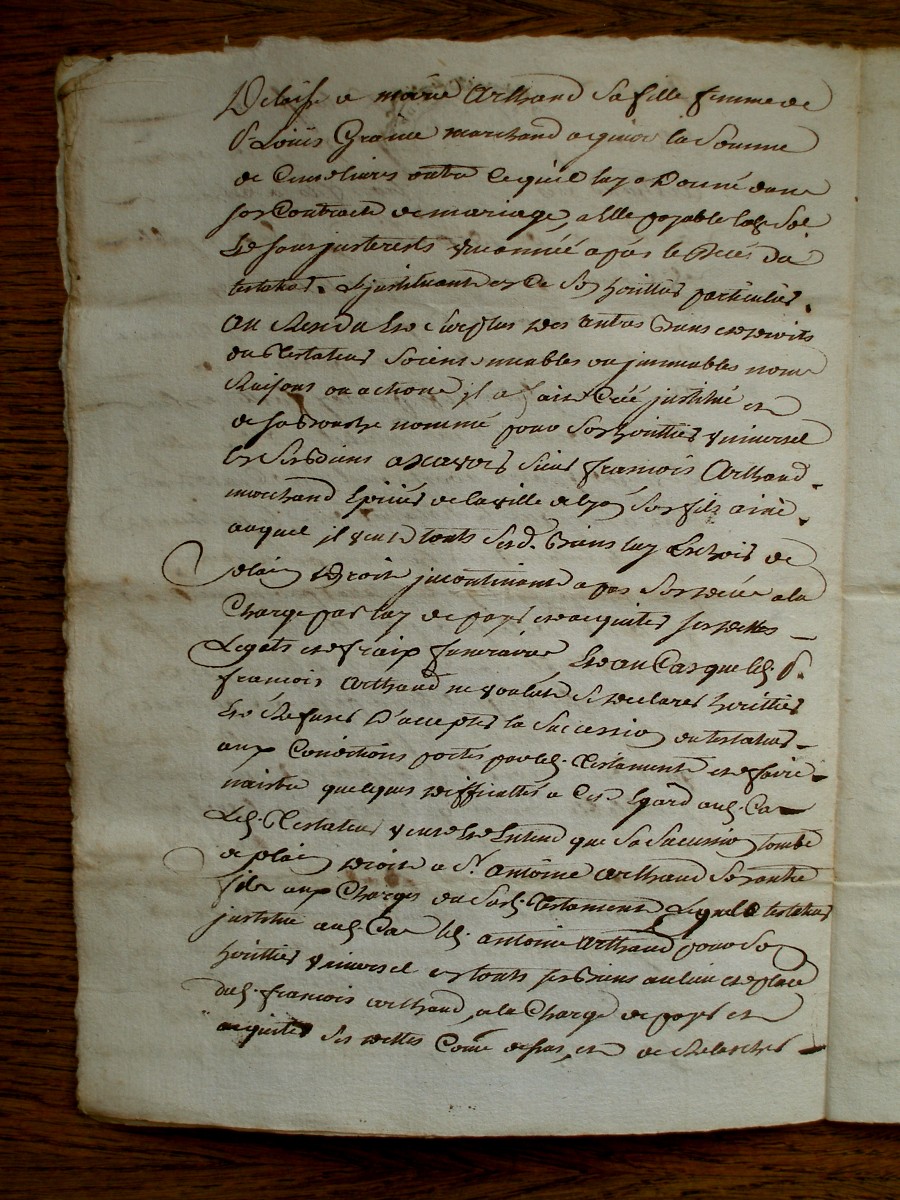 Delaisse a marie Arthaud sa fille femme de
Sr Louis marchand la Somme
de Cens livres outre ce quil luy a Donné dans
son Contract de mariage, a Elle payable lad. So
Et sans justerests une année apres le Deces du
testateur. Linstituant en Ce Son heritiere particuliere.
Au Residu Et Surplus des autres Biens et droits
du Testateur Soient meubles ou jmmeubles noms
Raisons ou actions jl a fait Créé justitué et
de sa Bouche nommé pour Son heritier universel
En Ses Biens a Scavoir Sieur francois Arthaud
marchand Epicier de la ville de Son fils ainé
auquel jl veut touts Sesd. Biens luy Echoir de
plain Droit jncontinant apres Son deces a la
Charge par luy de payer et acquiter ses dettes
Legats et fraix funeraires Et au Cas que led. Sr
francois Arthaud ne voulut Se declarer heritier
Et Refuser D'accepter la Succession du testateur
aux Conditions portés par led. Testament et faire
naistre quelques difficultés a Cet Egard aud. Cas
Led. Testateur veut Et Entend que Sa Sucession tombe
de plain droit a Sr. antoine Arthaud Son autre
fils aux Charges du Susd. Testament Lequel testateur
justitue aud. Cas led. antoine Arthaud pour Son
heritier universel en touts ses Biens au lieu et place
dud. francois Arthaud, a la Charge de payer et
acquiter Ses dettes Comme dessus, et de Relascher